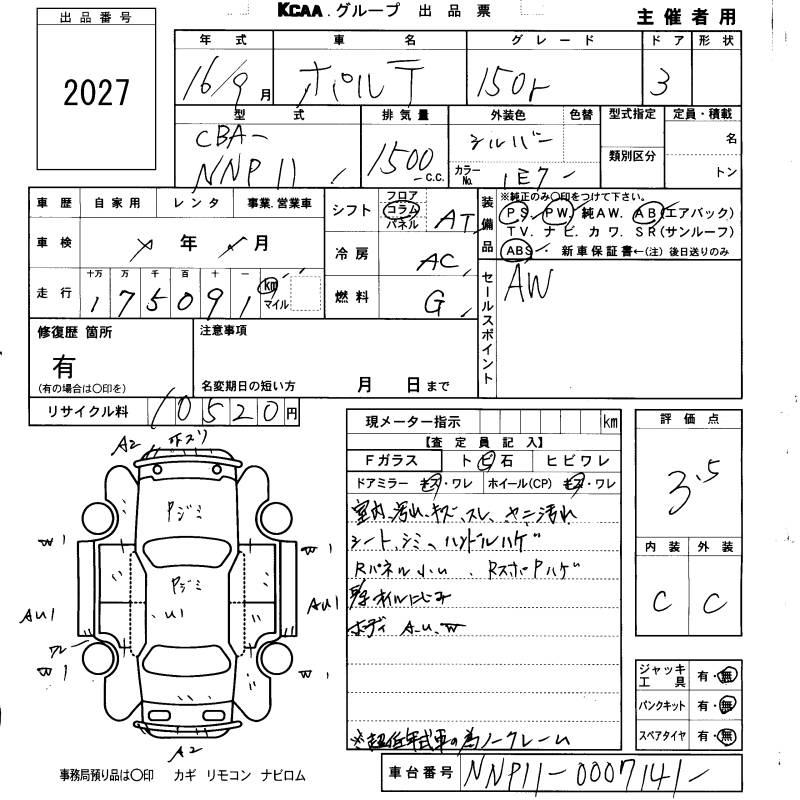 出品番号
KCAA.グループ 出品票
主催者用
2027
年式 車名 グレード ドア 形状
16/9月 ポルテ 150r 3
型式 排気量 外装色 色替 型式指定 定員・積載
CBA-
NNP11
1500 c.c.
シルバー
カラーNo. 1E7
名
類別区分
トン
車歴 自家用 レンタ 事業.営業車
シフト フロア コラム パネル AT
装備品
※純正のみ〇印をつけて下さい。
PS. PW. 純AW. AB(エアバック)
TV. ナビ. カワ. SR(サンルーフ)
ABS. 新車保証書←(注) 後日送りのみ
車検 年 月
冷房 AC
走行 十万 万 千 百 十 一
175091 km マイル
燃料 G
セールスポイント
AW
修復歴 箇所
有
(有の場合は〇印を)
注意事項
名変期日の短い方 月 日まで
リサイクル料 10520円
現メーター指示 km
【査定員記入】
Fガラス トビ石 ヒビワレ
ドアミラー キズ・ワレ ホイール(CP) キズ・ワレ
室内、汚れ、キズ、スレ、ヤニ汚れ
シート、シミ、ハンドルハゲ
Rパネル小u、RスポPハゲ
オイルにじみ
ボディ A.u.W
※超低年式車の為ノークレーム
評価点
3.5
内装 外装
C C
ジャッキ
工具 有・無
パンクキット 有・無
スペアタイヤ 有・無
A2
Pジミ
W1 W1
Pジミ
U1
AU1 AU1
ワレ
W1 W1
A2
事務局預り品は〇印 カギ リモコン ナビロム
車台番号 NNP11-0007141-